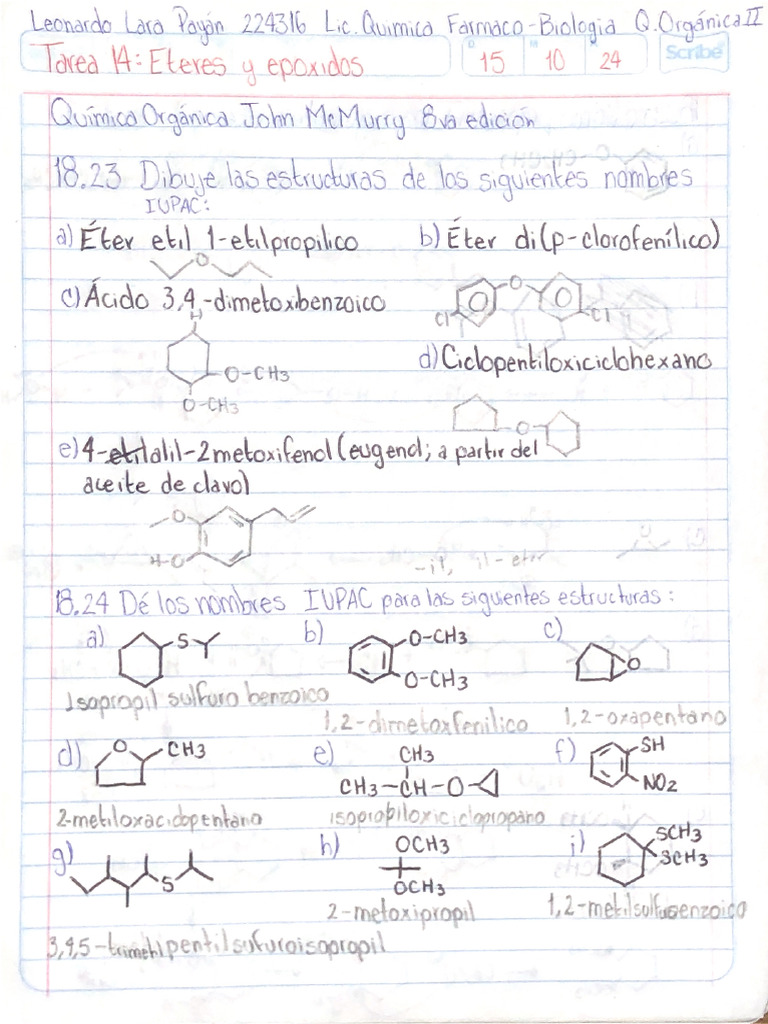 Leonardo Lara Payán 224316 Lic. Química Farmaco-Biologia Q. Orgánica II
Tarea 14: Eteres y epoxidos
D 15 M 10 A 24
Scribe
Química Orgánica John McMurry 8va edición
18.23 Dibuje las estructuras de los siguientes nombres
IUPAC:
a) Éter etil 1-etilpropilico b) Éter di(p-clorofenílico)
O
c) Ácido 3,4,-dimetoxibenzoico
O
Cl Cl
H
O-CH3
O-CH3
d) Ciclopentiloxiciclohexano
O
e) 4-etilalil-2metoxifenol (eugenol; a partir del
aceite de clavo)
O
H-O
18.24 Dé los nombres IUPAC para las siguientes estructuras:
a) S b) O-CH3 O-CH3 c) O
Isopropil sulfuro benzoico
1,2-dimetoxfenilico 1,2-oxapentano
d) O CH3 e) CH3 f) SH
CH3-CH-O NO2
2-metiloxacidopentano isopropiloxiciclopropano
g) S h) OCH3 OCH3 i) SCH3 SCH3
2-metoxipropil 1,2-metilsulfusenzoico
3,4,5-trimetilpentilsufuroisopropil